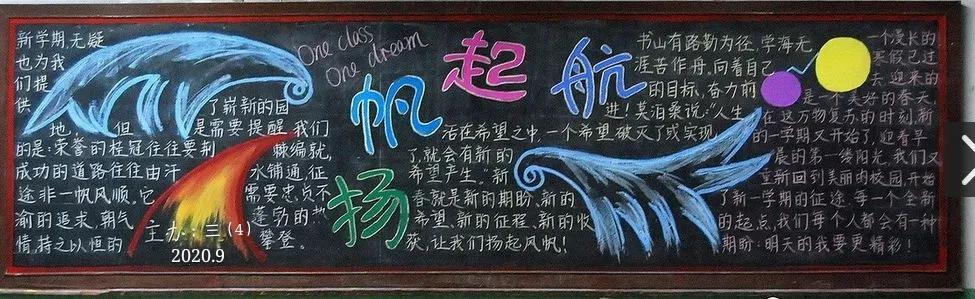 新学期,无疑
也为我
们提
供
了崭新的园
地,但是需要提醒我们
的是:荣誉的桂冠往往要荆棘编就,
成功的道路往往由汗水铺通,征
途非一帆风顺。它需要忠贞不
渝的追求,朝气蓬勃的热
情,持之以恒的攀登。
主办:三(4)
2020.9
One class
One dream
扬帆起航
书山有路勤为径,学海无
涯苦作舟。向着自己
的目标,奋力前
进!莫泊桑说:“人生
活在希望之中,一个希望破灭了或实现
了,就会有新的
希望产生。”新
春就是新的期盼、新的
希望、新的征程、新的收
获,让我们扬起风帆!
一个漫长的
寒假已过
去,迎来的
是一个美好的春天。
在这万物复苏的时刻,新
的一学期又开始了,迎着早
晨的第一缕阳光,我们又
重新回到美丽的校园,开始
了新一学期的征途,每一个全新
的起点,我们每个人都会有一种
期盼:明天的我要更精彩!